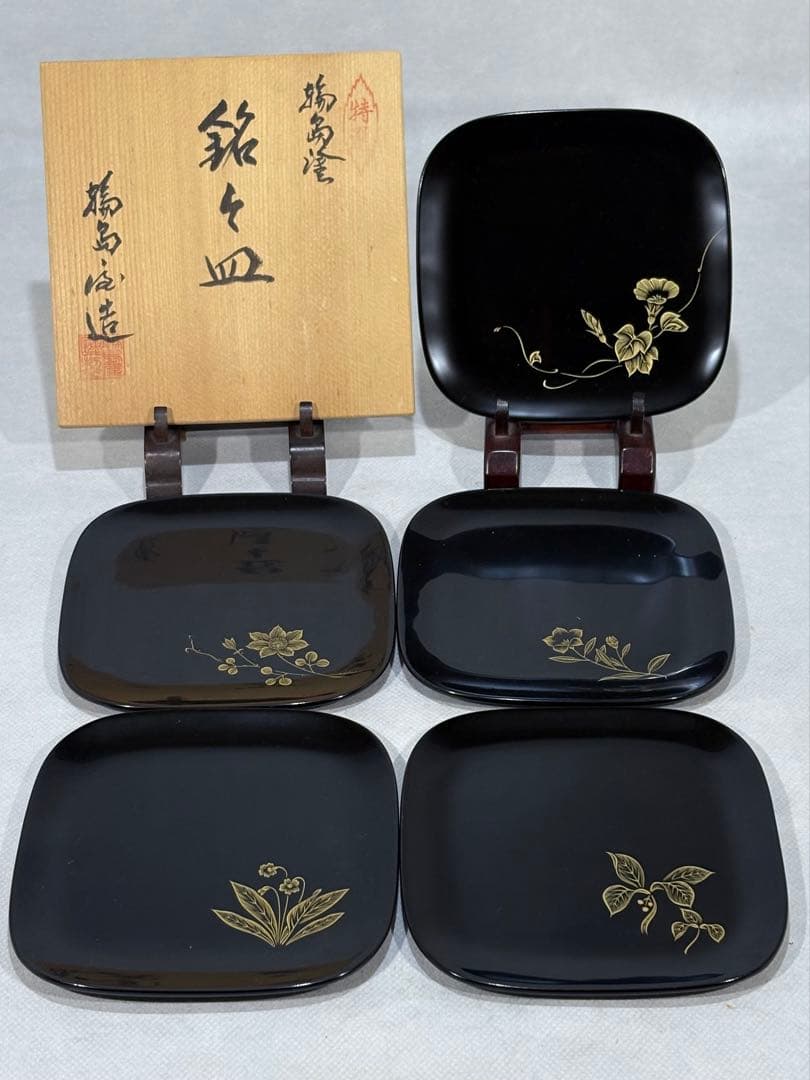 特
輪島塗
銘々皿
輪島
造